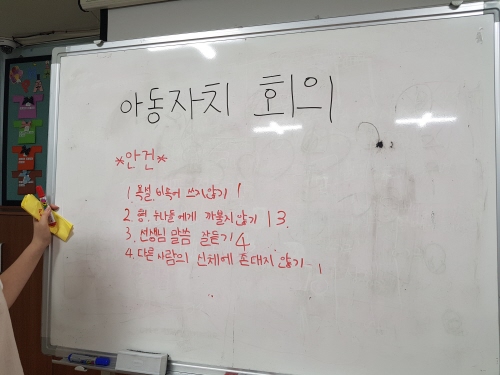 아동자치 회의
*안건*
1. 욕설, 비속어 쓰지않기 1
2. 형, 누나들에게 까불지않기 13
3. 선생님 말씀 잘듣기 4
4. 다른 사람의 신체에 손대지 않기 - 1